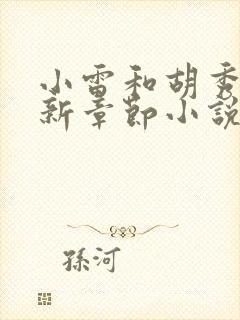 小雷和胡秀
新章節小說
孫河